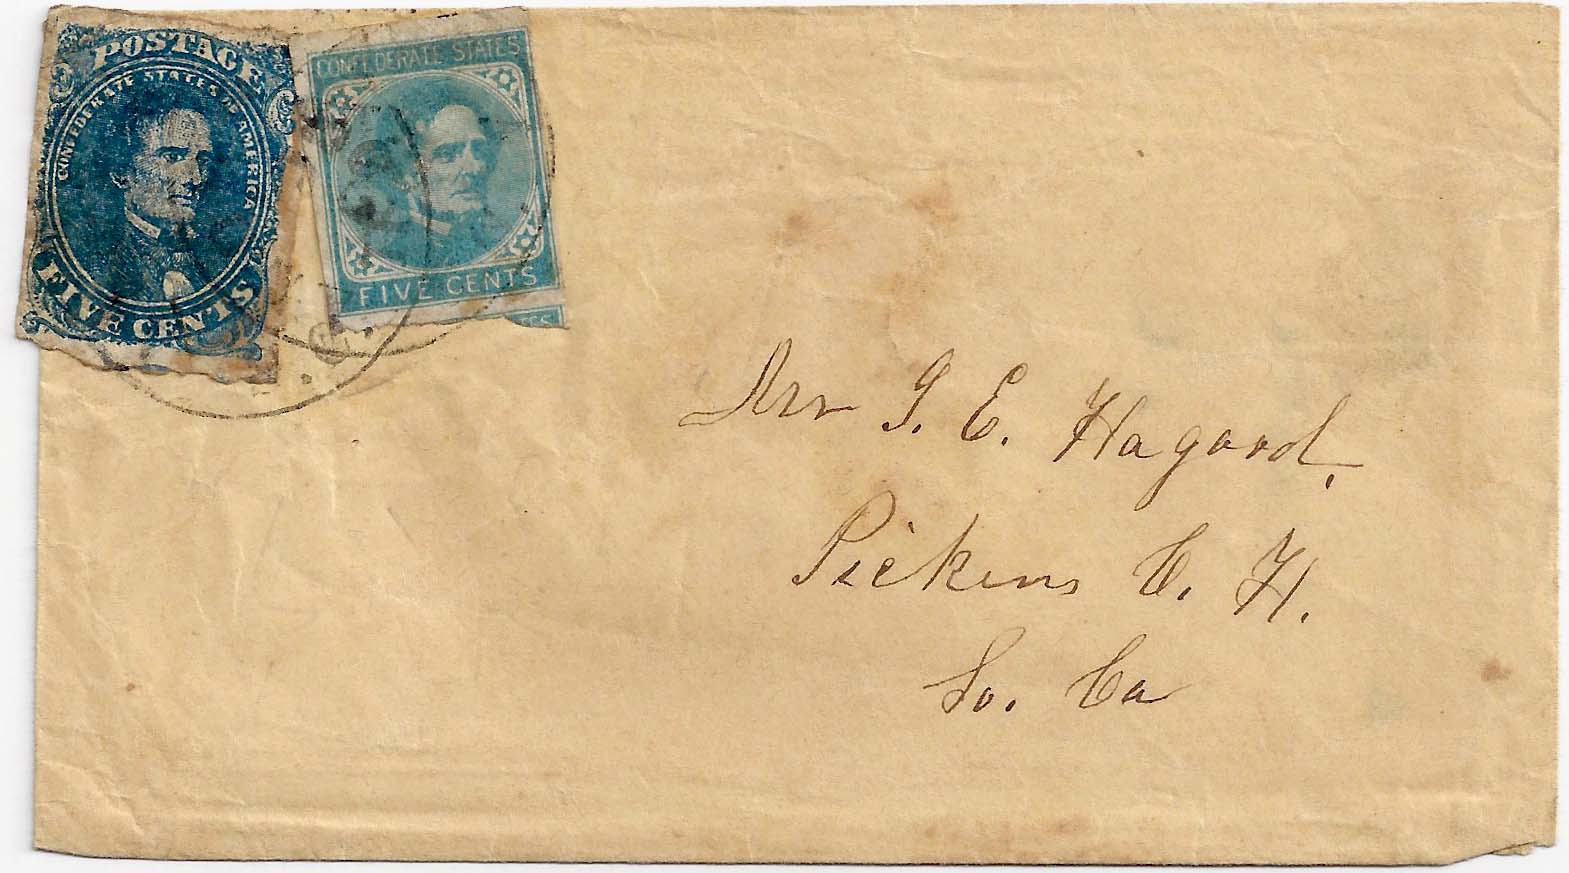 POSTAGE
CONFEDERATE STATES OF AMERICA
FIVE CENTS
CONFEDERATE STATES
FIVE CENTS
TES
Mr G. E. Hagood,
Pickens C. H.
So. Ca